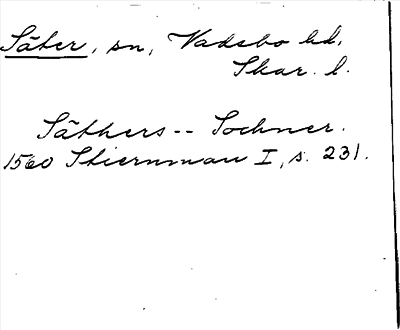 Säter, sn, Vadsbo hd,
Skar. l.
Säthers -- Sochner.
1560 Stiernman I, s. 231.